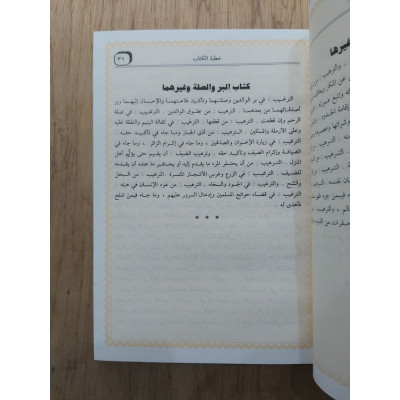 خطبة الكتاب
٣١
كتاب البر والصلة وغيرهما
الترغيب : في بر الوالدين وصلتهما وتأكيد طاعتهما والإحسان إليهما وبر
أصدقائهما من بعدهما . الترهيب : من عقوق الوالدين . الترغيب : في صلة
الرحم وإن قطعت . الترغيب : في كفالة اليتيم والنفقة عليه
وعلى الأرملة والمسكين . الترهيب : من أذى الجار وما جاء في تأكيد حقه .
الترغيب : في زيارة الإخوان والصالحين ، وما جاء في إكرام الزائر . وما جاء في
الضيافة وإكرام الضيف وتأكيد حقه . وترهيب الضيف : أن يقيم حتى يؤثم أهل
المنزل . الترهيب : من أن يحتقر المرء ما يقدم إليه أو يحتقر ما عنده أن يقدمه
للضيف . الترغيب : في الزرع وغرس الأشجار المثمرة . الترهيب : من البخل
والشح . والترغيب : في الجود والسخاء . الترهيب : من عود الإنسان في هبته .
الترغيب : في قضاء حوائج المسلمين وإدخال السرور عليهم ، وما جاء فيمن شفع
فأهدى له .
* * *